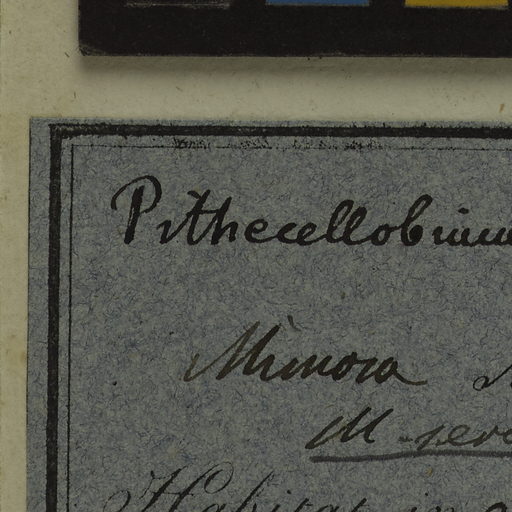 Pithecellobium
Mimosa
M.
Habitat in